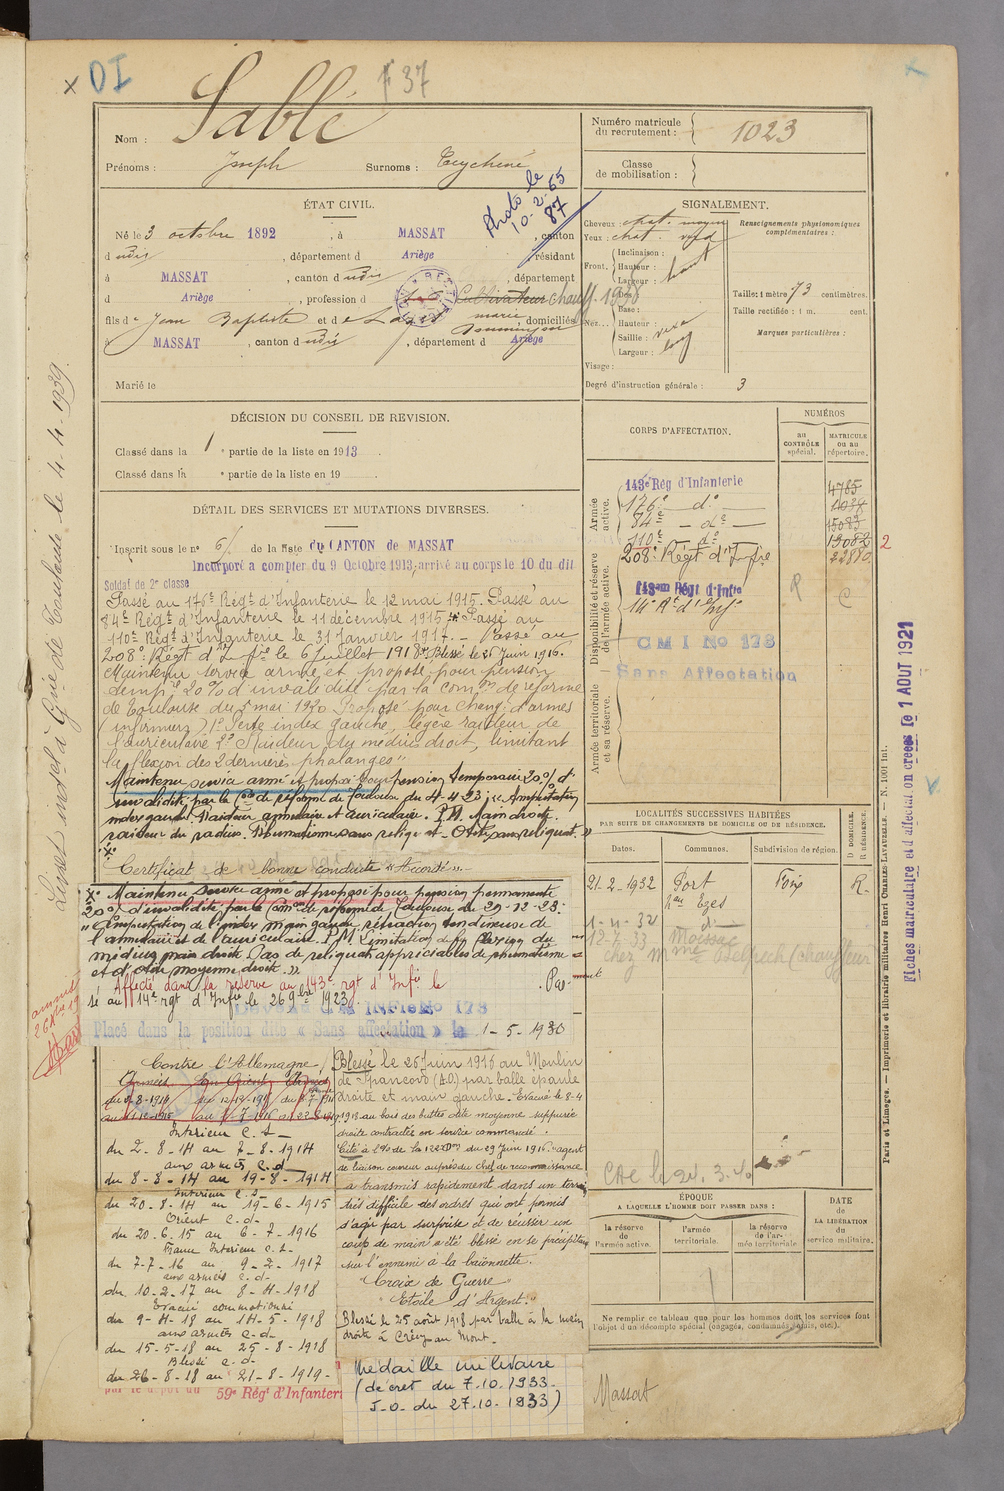 × DI
F 37
Nom : Sablé
Prénoms : Joseph Surnoms : Eychenne
Numéro matricule du recrutement : 1023
Classe de mobilisation :
Photo le 10-2-65
87
ÉTAT CIVIL.
Né le 3 octobre 1892, à MASSAT, canton
dudit, département d Ariège, résidant
à MASSAT, canton dudit, département
d Ariège, profession d Cultivateur chauff. 1936
fils de Jean Baptiste et de marie, domiciliés
à MASSAT, canton dudit, département d Ariège
Marié le
SIGNALEMENT.
Cheveux : chat. moyen
Yeux : chat.
Front.
Inclinaison :
Hauteur : haut
Largeur :
Nez...
Dos :
Base :
Hauteur :
Saillie :
Largeur : long
Visage :
Renseignements physionomiques complémentaires :
Taille : 1 mètre 73 centimètres.
Taille rectifiée : 1 m. cent.
Marques particulières :
Degré d'instruction générale : 3
DÉCISION DU CONSEIL DE REVISION.
Classé dans la 1e partie de la liste en 1913
Classé dans la e partie de la liste en 19
DÉTAIL DES SERVICES ET MUTATIONS DIVERSES.
Inscrit sous le n° 6 de la liste du CANTON de MASSAT
Incorporé a compter du 9 Octobre 1913, arrivé au corps le 10 du dit
Soldat de 2e classe
Passé au 176e Régt d'Infanterie le 12 mai 1915. Passé au
84e Régt d'Infanterie le 11 décembre 1915. Passé au
110e Régt d'Infanterie le 31 Janvier 1917. — Passé au
208e Régt d'Infie le 6 Juillet 1918. Blessé le 26 Juin 1916.
Maintenu service armé et proposé pour pension
temp. 20% d'invalidité par la comon de réforme
de Toulouse du 5 mai 1920. Proposé pour chang. d'armes
(infirmiers) 1° Perte index gauche, légère raideur de
l'auriculaire 2° Raideur du médius droit, limitant
la flexion des 2 dernières phalanges"
Maintenu service armé et proposé pour pension temporaire 20% d'
invalidité par la Con de réforme de Toulouse du 4-4-23 : "Amputation
index gauche. Raideur annulaire et auriculaire. P.M. Main droite.
raideur du radius. Rhumatisme sans reliquat. Otite sans reliquat. »
Certificat de bonne conduite "Accordé"
Maintenu service armé et proposé pour pension permanente
20% d'invalidité par la Comon de réforme de Toulouse du 29-12-23 :
"Amputation de l'index main gauche, rétraction tendineuse de
l'annulaire et de l'auriculaire. P.M. Limitation de la flexion du
médius main droite. Pas de reliquat appréciables de rhumatisme
et d'otite moyenne droite. »
Affecté dans la réserve au 143e rgt d'Infie le
Passé au 14e rgt d'Infie le 26 9bre 1923.
Devenu C M INFie No 178
Placé dans la position dite « Sans affectation » le 1-5-1930
Livret indel à Gne de Toulouse le 4.4.1939
CORPS D'AFFECTATION.
NUMÉROS
au CONTRÔLE spécial.
MATRICULE ou au répertoire.
Armée active.
143e Rég d'Infanterie 4785
176e — do —
84e — do — 15083
110e — do 13082
208e Régt d'Infie 22880
2
Disponibilité et réserve de l'armée active.
143em Régt d'Infie
14e Rt d'Inf
C M I No 178
Sans Affectation
Armée territoriale et sa réserve.
LOCALITÉS SUCCESSIVES HABITÉES
PAR SUITE DE CHANGEMENTS DE DOMICILE OU DE RÉSIDENCE.
Dates. Communes. Subdivision de région. D DOMICILE. R RÉSIDENCE.
21-2-1932 Port Foix R.
1-4-32 d°
12-7-33 Moissac
chez Mme Delpech (chauffeur
Contre l'Allemagne
Intérieur C.S.
du 2-8-14 au 7-8-1914
aux armées C.d.
du 8-8-14 au 19-8-1914
Intérieur C.S.
du 20-8-14 au 19-6-1915
Orient C.d.
du 20.6.15 au 6-7-1916
France Intérieur C.S.
du 7-7-16 au 9-2-1917
aux armées C.d.
du 10-2-17 au 8-4-1918
Evacué commotionné
du 9-4-18 au 14-5-1918
aux armées C.d.
du 15-5-18 au 25-8-1918
Blessé C.d.
du 26-8-18 au 21-8-1919
par le dépot du 59e Régt d'Infanterie
Blessé le 26 Juin 1916 au Moulin
de Francovo (A.O.) par balle épaule
droite et main gauche. Evacué le 8-4
1918 au bois des buttes otite moyenne suppurée
droite contractée en service commandé.
Cité à l'O. de la 122e Don du 29 Juin 1916. "agent
de liaison coureur auprès du chef de reconnaissance
a transmis rapidement dans un terrain
très difficile des ordres qui ont permis
d'agir par surprise et de réussir un
coup de main a été blessé en se précipitant
sur l'ennemi à la baïonnette.
"Croix de Guerre"
"Etoile d'Argent."
Blessé le 25 août 1918 par balle à la main
droite à Crécy au Mont.
Médaille militaire
(décret du 7.10.1933
J.O. du 27.10.1933)
CRC le 20.3.40
ÉPOQUE
A LAQUELLE L'HOMME DOIT PASSER DANS :
la réserve de l'armée active.
l'armée territoriale.
la réserve de l'armée territoriale
DATE DE LA LIBÉRATION du service militaire.
Ne remplir ce tableau que pour les hommes dont les services font
l'objet d'un décompte spécial (engagés, condamnés, omis, etc.).
Massat
Fiches matriculaire et d'affectation créées le 1 AOUT 1921
Paris et Limoges. — Imprimerie et librairie militaires Henri CHARLES-LAVAUZELLE. — N. 1001 int.